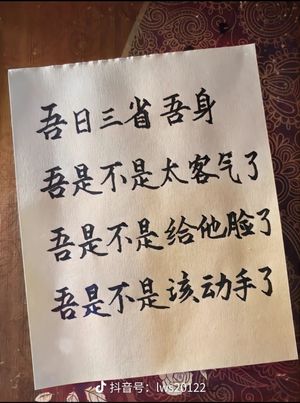 吾日三省吾身
吾是不是太客气了
吾是不是给他脸了
吾是不是该动手了
抖音号：lwsz0122